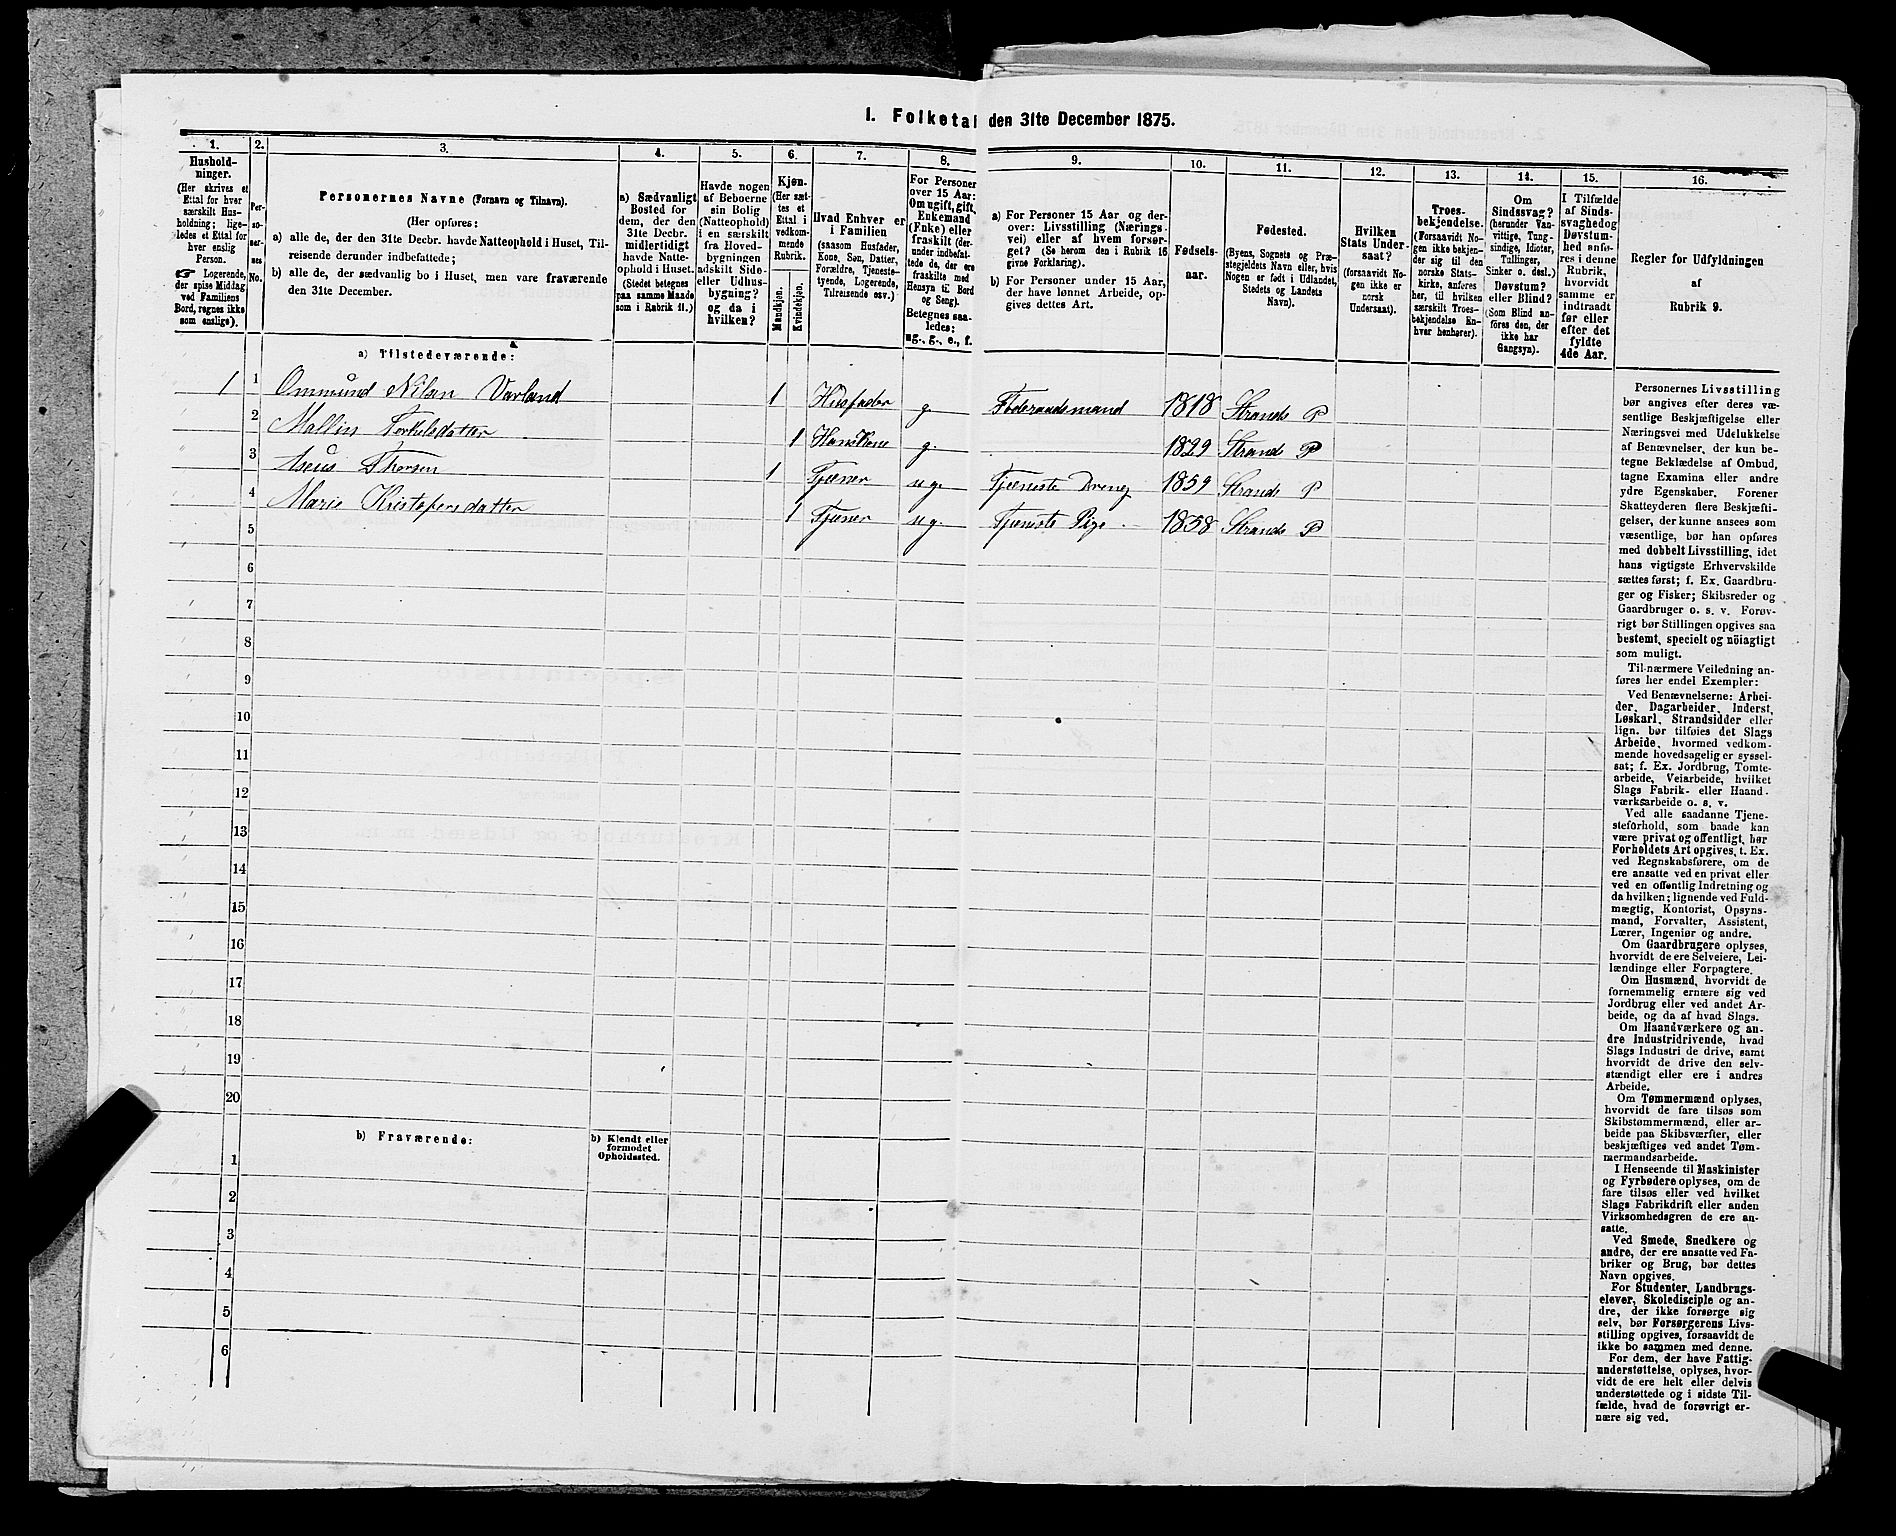 I. Folketal den 31te December 1875.
1.
Hushold-
ninger.
(Her skrives et
Ettal for hver
særskilt Hus-
holdning; lige-
ledes et Ettal for
hver enslig
Person.
☞ Logerende,
der spise Middag
ved Familiens
Bord, regnes ikke
som enslige).
2.
Per-
so-
ner-
nes
No.
3.
Personernes Navne (Fornavn og Tilnavn).
(Her opføres:
a) alle de, der den 31te Decbr. havde Natteophold i Huset, Til-
reisende derunder indbefattede;
b) alle de, der sædvanlig bo i Huset, men vare fraværende
den 31te December.
4.
a) Sædvanligt
Bosted for
dem, der den
31te Decbr.
midlertidigt
havde Natte-
ophold i Huset.
(Stedet betegnes
paa samme Maade
som i Rubrik 11.)
5.
Havde nogen
af Beboerne
sin Bolig
(Natteophold)
i en særskilt
fra Hoved-
bygningen
adskilt Side-
eller Udhus-
bygning?
og da i
hvilken?
6.
Kjøn.
(Her sæt-
tes et
Ettal i
vedkom-
mende
Rubrik.
Mandkjøn.
Kvindekjøn.
7.
Hvad Enhver er
i Familien
(saasom Husfader,
Kone, Søn, Datter,
Forældre, Tjeneste-
tyende, Logerende,
Tilreisende osv.)
8.
For Personer
over 15 Aar:
Om ugift, gift,
Enkemand
(Enke) eller
fraskilt (der-
under indbefat-
tede de, der ere
fraskilte med
Hensyn til Bord
og Seng).
Betegnes saa-
ledes:
ug., g., e., f.
9.
a) For Personer 15 Aar og der-
over: Livsstilling (Nærings-
vei) eller af hvem forsør-
get? (Se herom den i Rubrik 16
givne Forklaring).
b) For Personer under 15 Aar,
der have lønnet Arbeide, op-
gives dettes Art.
10.
Fødsels-
aar.
11.
Fødested.
(Byens, Sognets og Præ-
stegjeldets Navn eller, hvis
Nogen er født i Udlandet,
Stedets og Landets
Navn).
12.
Hvilken
Stats Under-
saat?
(forsaavidt No-
gen ikke er
norsk
Undersaat).
13.
Troes-
bekjendelse.
(Forsaavidt No-
gen ikke bekjen-
der sig til den
norske Stats-
kirke, anføres
her, til hvilken
særskilt Troes-
bekjendelse En-
hver henhører).
14.
Om
Sindssvag?
(herunder Van-
vittige, Tung-
sindige, Idioter,
Tullinger,
Sinker o. desl.)
Døvstum?
eller Blind?
(Som Blind an-
føres den, der
ikke har
Gangsyn).
15.
I Tilfælde
af Sinds-
svaghed og
Døvstum-
hed anfø-
res i denne
Rubrik,
hvorvidt
samme er
indtraadt
før eller
efter det
fyldte
4de Aar.
16.
Regler for Udfyldningen
af
Rubrik 9.
a) Tilstedeværende:
1 1 Ommund Nilsn Varland 1 Husfader g. Føderaadsmand 1818 Strands P
2 Mallin Torkelsdatter 1 Hans Kone g. 1829 Strand P
3 Aseus Thorsen 1 Tjener ug. Tjeneste Dreng 1859 Strands P
4 Marie Kristofersdatter 1 Tjener ug. Tjeneste Pige 1858 Strands P
5
6
7
8
9
10
11
12
13
14
15
16
17
18
19
20
b) Fraværende:
b) Kjendt eller
formodet
Opholdssted.
1
2
3
4
5
6
Personernes Livsstilling
bør angives efter deres væ-
sentlige Beskjæftigelse eller
Næringsvei med Udelukkelse
af Benævnelser, der kun be-
tegne Beklædelse af Ombud,
tagne Examina eller andre
ydre Egenskaber. Forener
Skatteyderen flere Beskjæfti-
gelser, der kunne ansees som
væsentlige, bør han opføres
med dobbelt Livsstilling, idet
hans vigtigste Erhvervskilde
sættes først; f. Ex. Gaardbru-
ger og Fisker; Skibsreder og
Gaardbruger o. s. v. Forøv-
rigt bør Stillingen opgives saa
bestemt, specielt og nöiagtigt
som muligt.
Til nærmere Veiledning an-
føres her endel Exempler:
Ved Benævnelserne: Arbei-
der, Dagarbeider, Inderst,
Løskarl, Strandsidder eller
lign. bør tilføies det Slags
Arbeide, hvormed vedkom-
mende hovedsagelig er syssel-
sat; f. Ex. Jordbrug, Tomte-
arbeide, Veiarbeide, hvilket
Slags Fabrik- eller Haand-
værksarbeide o. s. v.
Ved alle saadanne Tjene-
steförhold, som baade kan
være privat og offentligt, bør
Forholdets Art opgives, t. Ex.
ved Regnskabsførere, om de
ere ansatte ved en privat eller
ved en offentlig Indretning og
da hvilken; lignende ved Fuld-
mægtig, Kontorist, Opsyns-
mand, Forvalter, Assistent,
Lærer, Ingeniør og andre.
Om Gaardbrugere oplyses,
hvorvidt de ere Selveiere, Lei-
lændinge eller Forpagtere.
Om Husmænd, hvorvidt de
fornemmelig ernære sig ved
Jordbrug eller ved andet Ar-
beide, og da af hvad Slags.
Om Haandværkere og an-
dre Industridrivende, hvad
Slags Industri de drive, samt
hvorvidt de drive den selv-
stændigt eller ere i andres
Arbeide.
Om Tømmermænd oplyses,
hvorvidt de fare tilsøs som
Skibstømmermænd, eller ar-
beide paa Skibsværfter, eller
beskjæftiges ved andet Tøm-
mermandsarbeide.
I Henseende til Maskinister
og Fyrbødere oplyses, om de
fare tilsøs eller ved hvilket
Slags Fabrikdrift eller anden
Virksomhedsgren de ere an-
satte.
Ved Smede, Snedkere og
andre, der ere ansatte ved Fa-
briker og Brug, bør dettes
Navn opgives.
For Studenter, Landbrugs-
elever, Skoledisciple og an-
dre, der ikke forsørge sig
selv, bør Forsørgerens Livs-
stilling opgives, forsaavidt de
ikke bo sammen med denne.
For dem, der have Fattig-
understøttelse, oplyses, hvor-
vidt de ere helt eller delvis
understøttede og i sidste Til-
fælde, hvad de forøvrigt er-
nære sig ved.